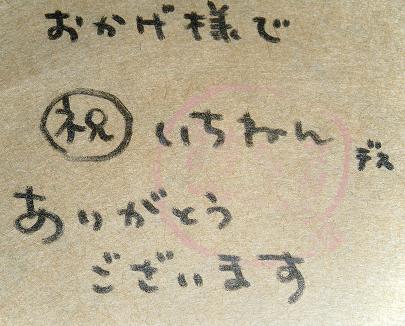 おかげ様で
㊗ いちねん デス
ありがとう
ございます